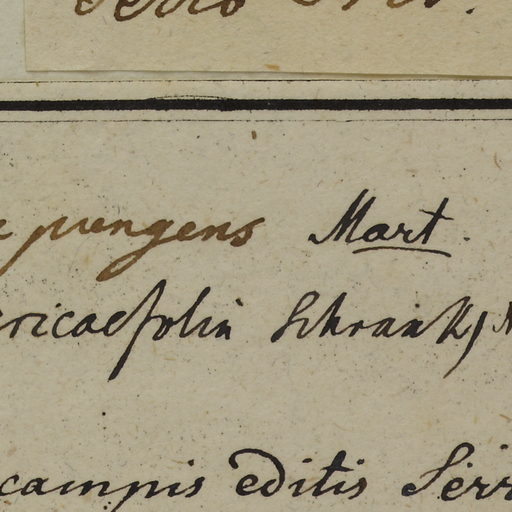 Serro Frio.
pungens Mart.
ericaefolia Schrank,
campis editis Serr